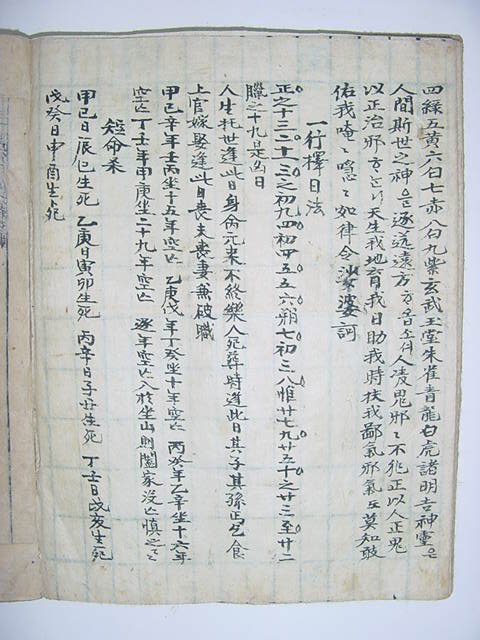 四綠五黃六白七赤八白九紫玄武玉堂朱雀青龍白虎諸明吉神靈은
人間斯世之神은逐送遠方하옵소셔人凌鬼邪〻不犯正以人正鬼
以正治邪하 天生我地育我日助我時扶我鄙氣邪氣 莫知敢
佑我唵〻喼〻如律令娑婆訶
一行擇日法
正之十三二十一三之初九四初四五五六朔七初三八惟廿七九廿五十之廿三至廿二
臘之十九是凶日
人生托世逢此日身病元来不終樂人死葬時逢此日其子其孫正乞食
上官嫁娶逢此日喪夫喪妻兼破職
甲己辛年壬丙坐十五年空亡 乙庚戊年丁癸坐十年空亡 丙癸年乙辛坐十六年
空亡 丁壬年甲庚坐二十九年空亡 逐年空亡入於坐山則闔家沒亡慎之〻
短命杀
甲己日辰巳生死 乙庚日寅卯生死 丙辛日子丑生死 丁壬日戌亥生死
戊癸日申酉生死